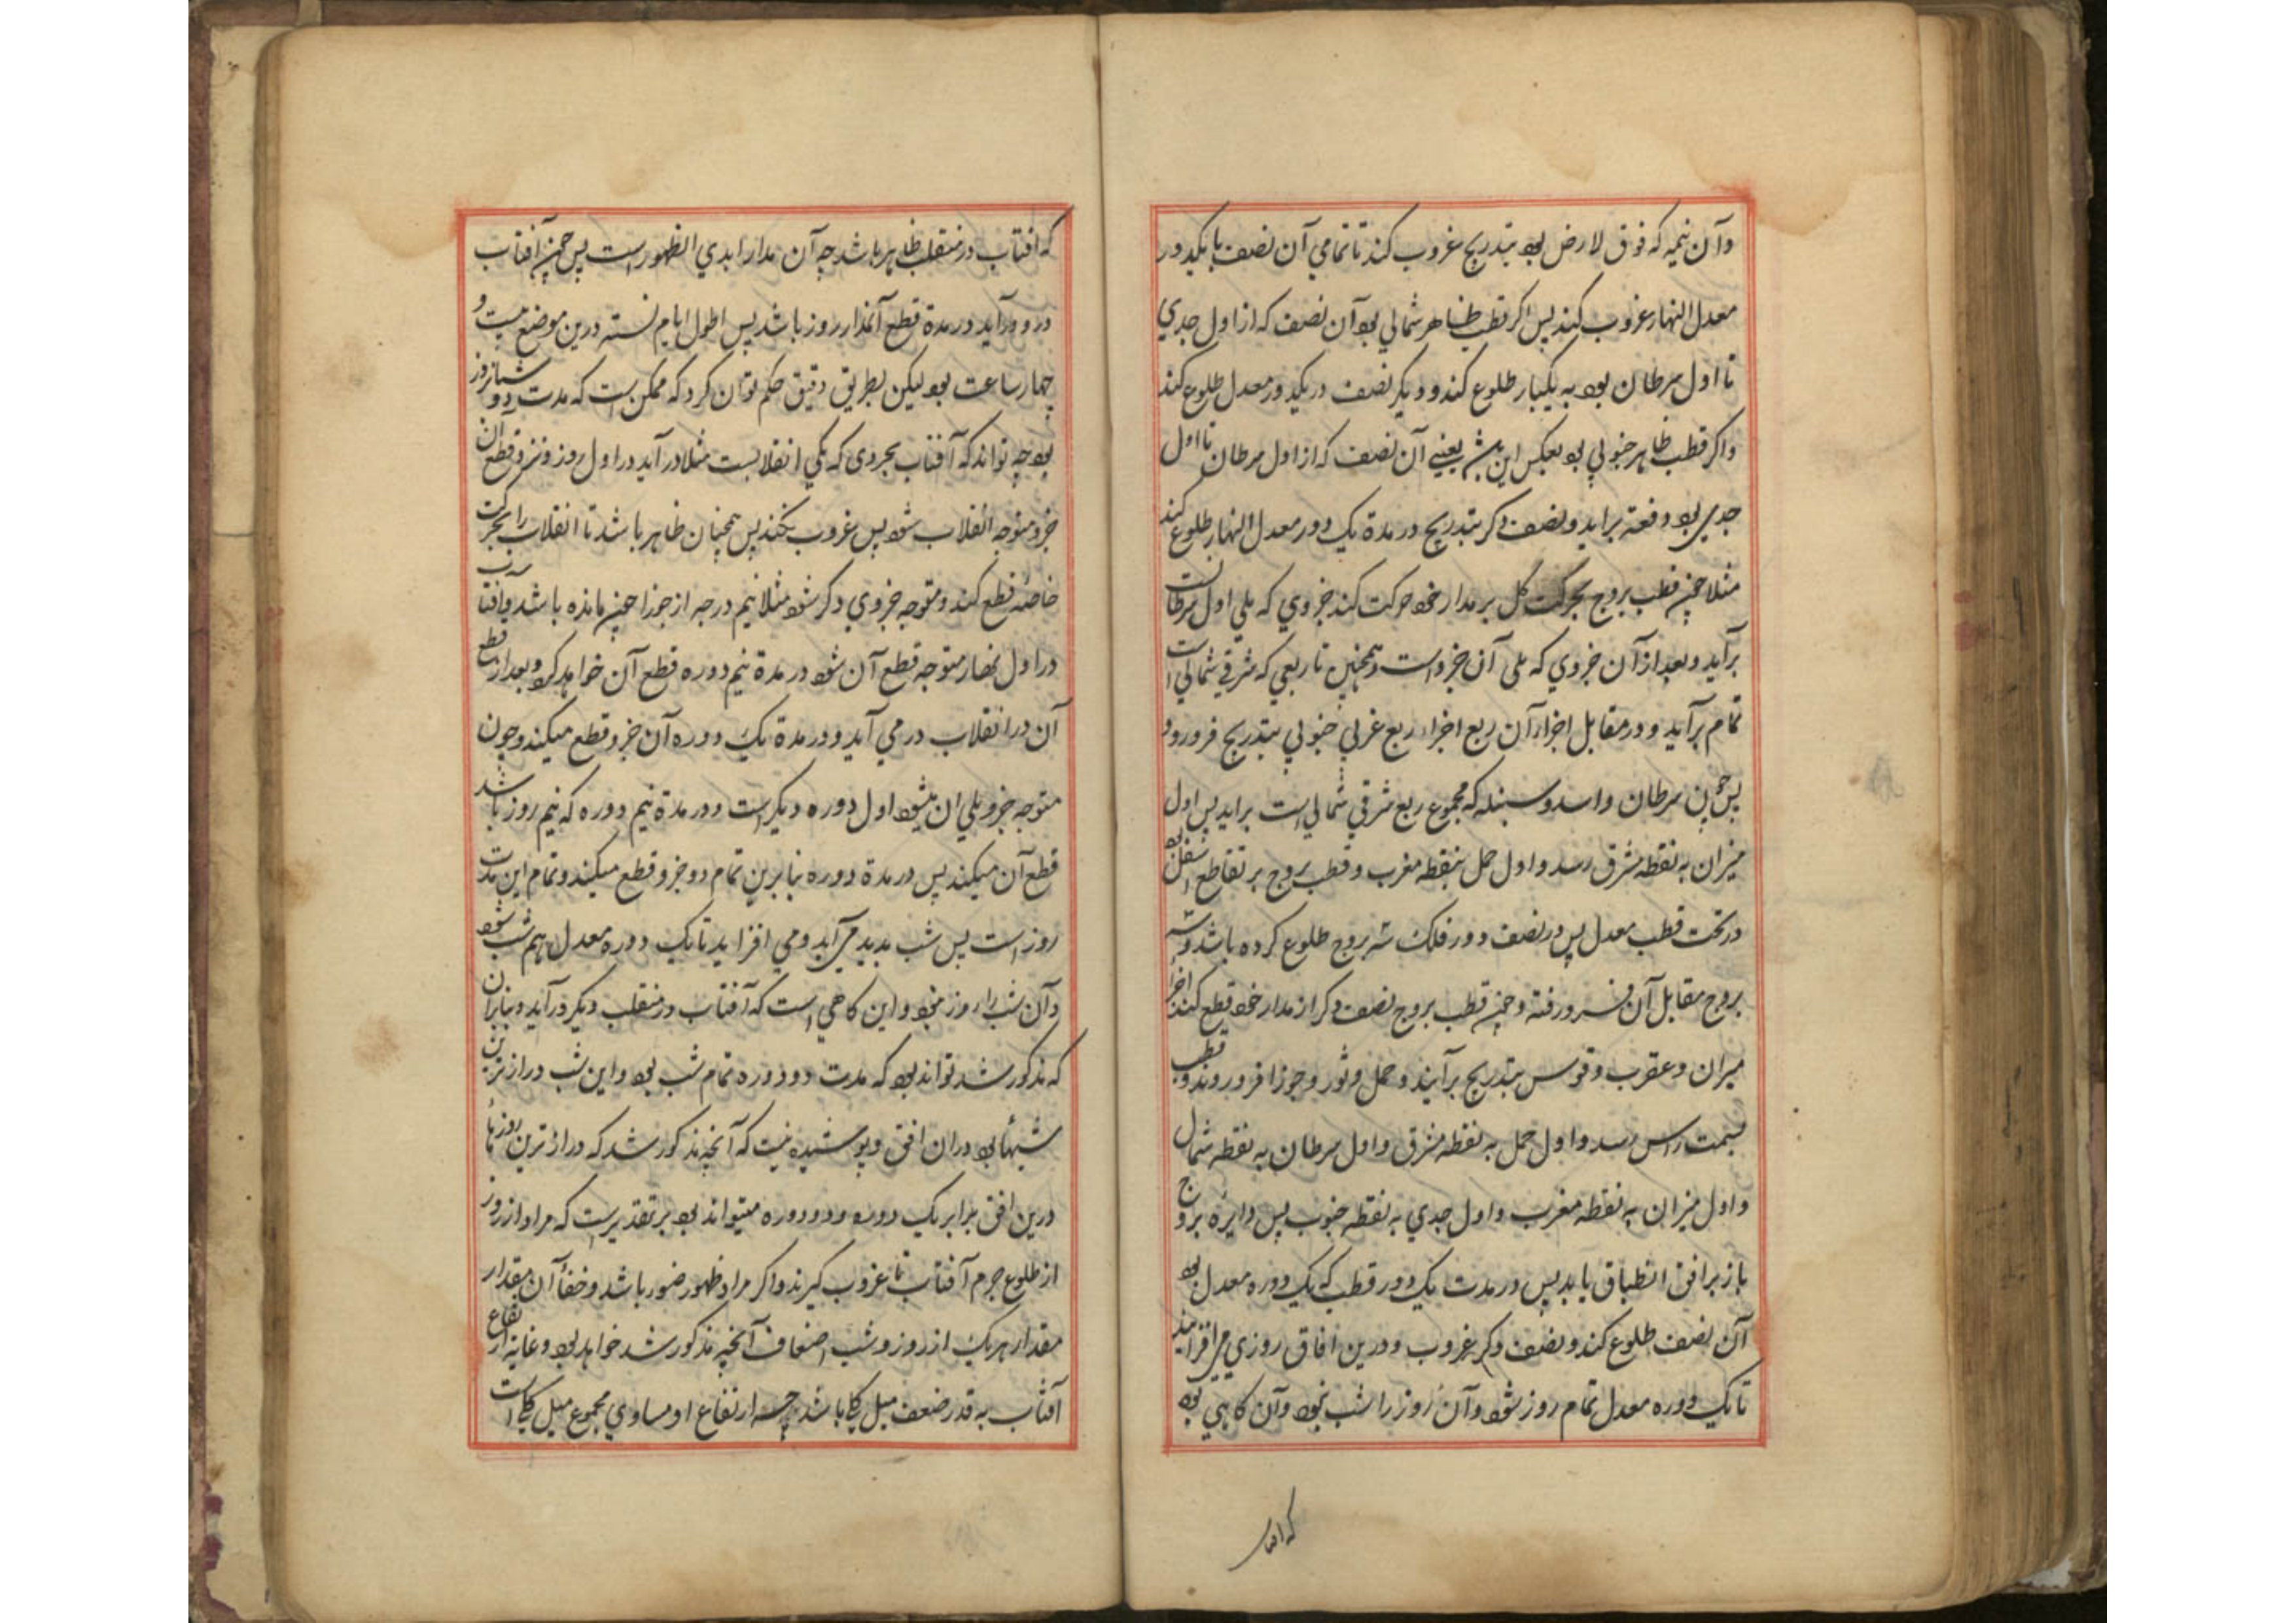 وآن نیمه که فوق لارض بود بتدریج غروب کند تا تمامی آن نصف با یکدور
معدل النهار غروب کند پس اکر قطب ظاهر شمالی بود آن نصف که از اول جدی
تا اول سرطان بود به یکبار طلوع کند و دیکر نصف در یکدور معدل طلوع کند
واکر قطب ظاهر جنوبی بود بعکس این باشد یعنی آن نصف که از اول سرطان تا اول
جدی بود دفعة براید و نصف دکر بتدریج در مدة یک دور معدل النهار طلوع کند
مثلا چون قطب بروج بحرکت کل بر مدار خود حرکت کند جزوی که یلی اول سرطانست
برآید و بعد از آن جزوی که یلی آن جزو است و همچنین تا ربعی که شرقی شمالی است
تمام برآید و در مقابل اجزاء آن ربع اجزاء ربع غربی جنوبی بتدریج فرو رود
پس چون سرطان و اسد و سنبله که مجموع ربع شرقی شمالی است براید پس اول
میزان به نقطه مشرق رسد و اول حمل بنقطه مغرب و قطب بروج بر تقاطع اسفل بود
در تحت قطب معدل پس در نصف دور فلک سه بروج طلوع کرده باشد و سه
بروج مقابل آن فرو رفته و چون قطب بروج نصف دکر از مدار خود قطع کند اجزا
میزان و عقرب و قوس بتدریج برآیند و حمل و ثور و جوزا فرو روند و قطب
بسمت راس رسد و اول حمل به نقطه مشرق و اول سرطان به نقطه شمال
و اول میزان به نقطه مغرب و اول جدی به نقطه جنوب پس دایره بروج
باز بر افق انطباق یابد پس در مدت یک دور قطب که یک دوره معدل بود
آن نصف طلوع کند و نصف دکر غروب و درین افاق روزی می افزاید
تا یک دوره معدل تمام روز شود و آن روز را شب نبود و آن کاهی بود
که افتاب
که افتاب در منقلب ظاهر باشد چه آن مدار ابدی الظهور است پس چون آفتاب
درو در آید در مدة قطع آنمدار روز باشد پس اطول ایام نسته درین موضع بیست و
چهار ساعت بود لیکن بطریق دقیق حکم توان کرد که ممکن است که مدت دو شبانروز
بود چه تواند که آفتاب بجزوی که یکی انقلابست مثلا در آید در اول روز و نیز و قطع ان
جزو متوجه انقلاب شود پس غروب نکند پس همچنان ظاهر باشد تا انقلاب را بحرکت
خاصه قطع کند و متوجه جزوی دکر شود مثلا نیم درجه از جوزا چون مانده باشد و آفتاب
در اول نهار متوجه قطع آن شود در مدة نیم دوره قطع آن خواهد کرد و بعد از قطع
آن در انقلاب در می آید و در مدة یک دوره آن جزو قطع میکند و چون
متوجه جزو یلی ان میشود اول دوره دیکر است و در مدة نیم دوره که نیم روز باشد
قطع آن میکند پس در مدة دوره بنابرین تمام دو جزو قطع میکند و تمام این مدت
روز است پس شب بدید می آید و می افزاید تا یک دوره معدل هم شب شود
و آن شب را روز نبود و این کاهی است که آفتاب در منقلب دیکر در آید و بنابران
که مذکور شد تواند بود که مدت دو دوره تمام شب بود و این شب درازترین
شبها بود در ان افق و پوشیده نیست که آنچه مذکور شد که درازترین روزها
درین افق برابر یک دوره و دو دوره میتواند بود بر تقدیریست که مراد از روز
از طلوع جرم آفتاب تا غروب کیرند و اکر مراد ظهور ضور باشد و خفاء آن مقدار
مقدار هر یک از روز و شب اضعاف آنچه مذکور شد خواهد بود و غایة ارتفاع
آفتاب به قدر ضعف میل کلی باشد چه ارتفاع او مساوی مجموع میل کلی است